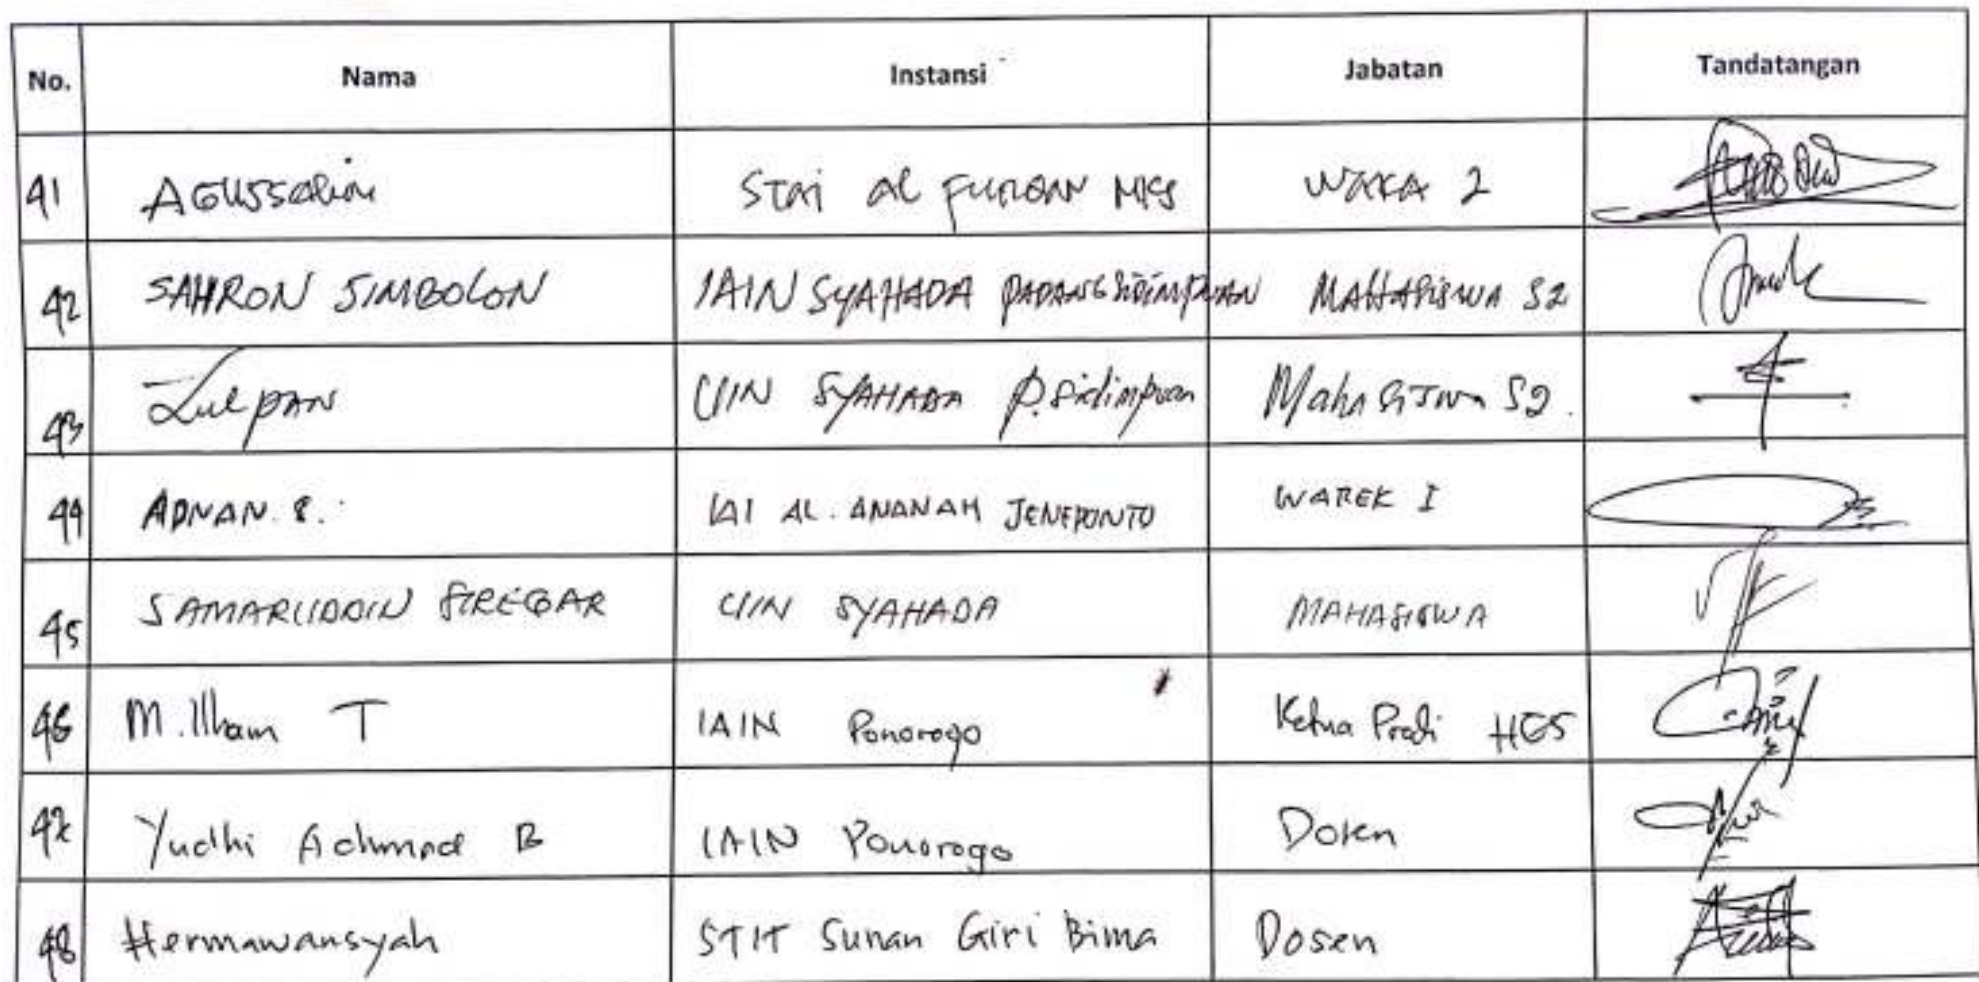 No. Nama Instansi Jabatan Tandatangan
41 AGUSSalim STAI al FURQAN MKS WAKA 2
42 SAHRON SIMBOLON IAIN SYAHADA PADANGSIDIMPUAN MAHASISWA S2
43 Zulpan UIN SYAHADA P.Sidimpuan Mahasiswa S2.
44 ADNAN. S. IAI AL. AMANAH JENEPONTO WAREK I
45 SAMARUDDIN SIREGAR UIN SYAHADA MAHASISWA
46 M. Ilham T IAIN Ponorogo Ketua Prodi HES
47 Yudhi Achmad B IAIN Ponorogo Dosen
48 Hermawansyah STIT Sunan Giri Bima Dosen